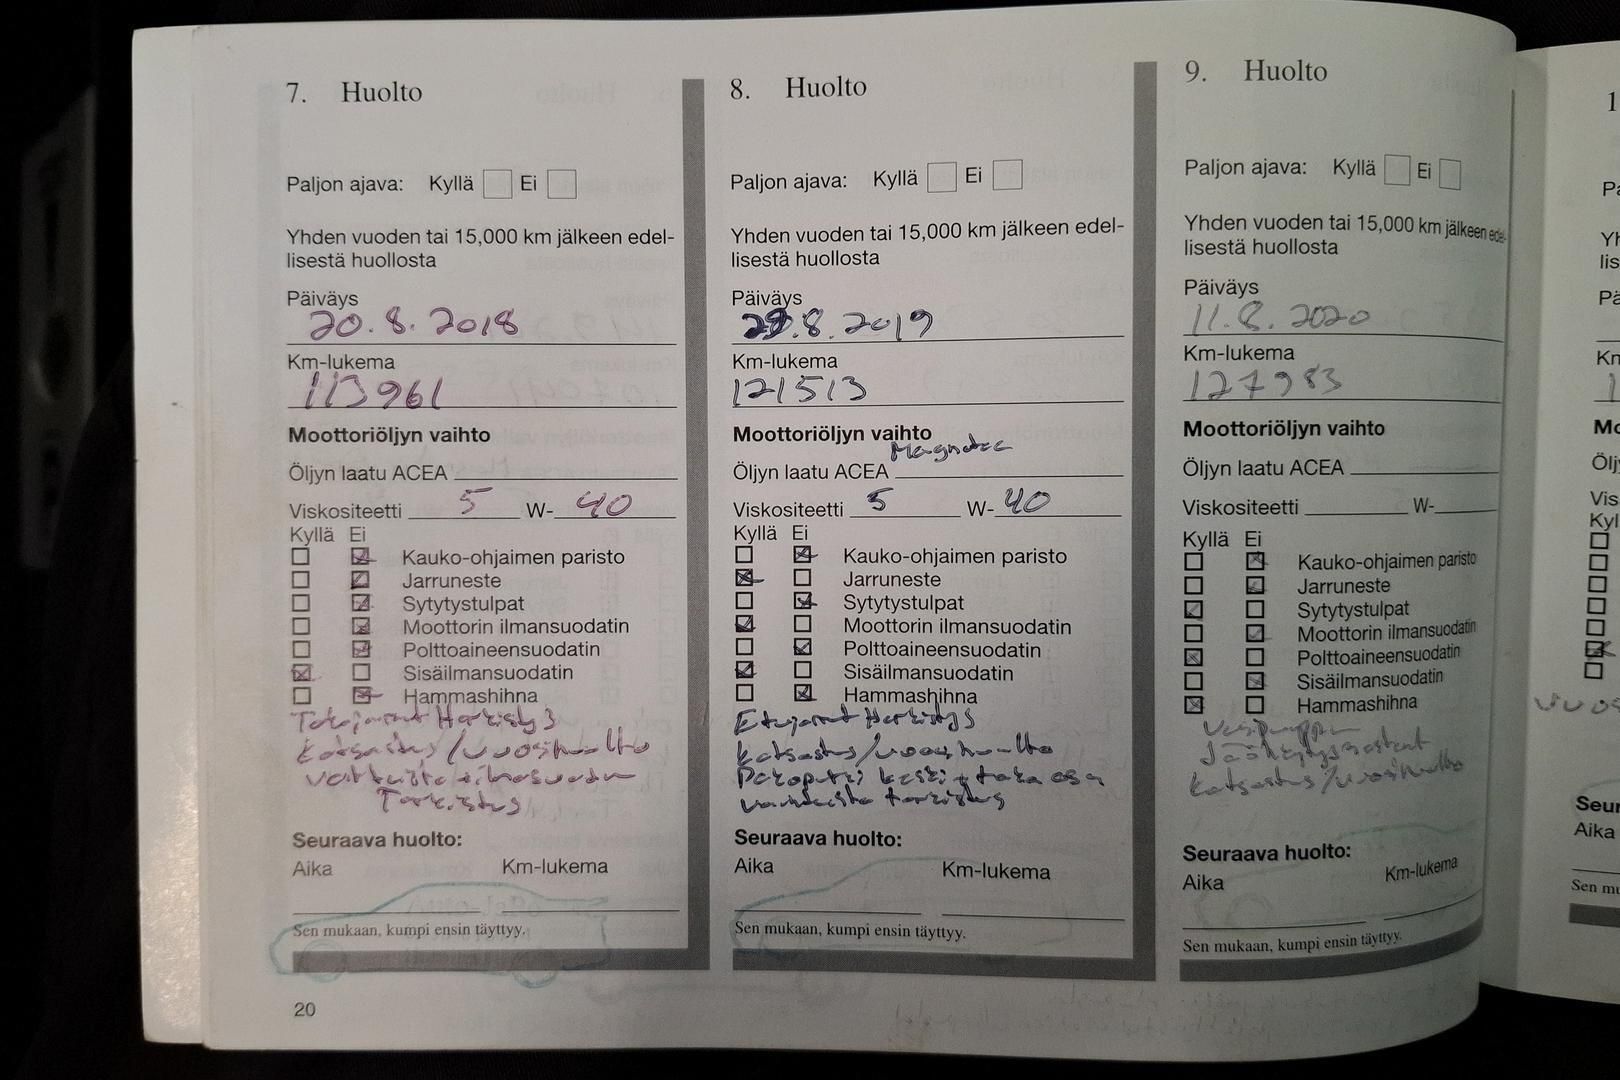 7. Huolto
Paljon ajava: Kyllä Ei
Yhden vuoden tai 15,000 km jälkeen edel-
lisestä huollosta
Päiväys
20.8.2018
Km-lukema
113961
Moottoriöljyn vaihto
Öljyn laatu ACEA
Viskositeetti 5 W- 40
Kyllä Ei
Kauko-ohjaimen paristo
Jarruneste
Sytytystulpat
Moottorin ilmansuodatin
Polttoaineensuodatin
Sisäilmansuodatin
Hammashihna
Takajarrut Herkistys
Katsastus/vuosihuolto
Tarkistus
Seuraava huolto:
Aika Km-lukema
Sen mukaan, kumpi ensin täyttyy.
20
8. Huolto
Paljon ajava: Kyllä Ei
Yhden vuoden tai 15,000 km jälkeen edel-
lisestä huollosta
Päiväys
8.2019
Km-lukema
121513
Moottoriöljyn vaihto
Magnatec
Öljyn laatu ACEA
Viskositeetti 5 W- 40
Kyllä Ei
Kauko-ohjaimen paristo
Jarruneste
Sytytystulpat
Moottorin ilmansuodatin
Polttoaineensuodatin
Sisäilmansuodatin
Hammashihna
Etujarrut Herkistys
Katsastus/vuosihuolto
Pakoputki keski + taka osa
tarkistus
Seuraava huolto:
Aika Km-lukema
Sen mukaan, kumpi ensin täyttyy.
9. Huolto
Paljon ajava: Kyllä Ei
Yhden vuoden tai 15,000 km jälkeen edel-
lisestä huollosta
Päiväys
11.8.2020
Km-lukema
127983
Moottoriöljyn vaihto
Öljyn laatu ACEA
Viskositeetti W-
Kyllä Ei
Kauko-ohjaimen paristo
Jarruneste
Sytytystulpat
Moottorin ilmansuodatin
Polttoaineensuodatin
Sisäilmansuodatin
Hammashihna
Vesipumppu
Katsastus/vuosihuolto
Seuraava huolto:
Aika Km-lukema
Sen mukaan, kumpi ensin täyttyy.
Aika